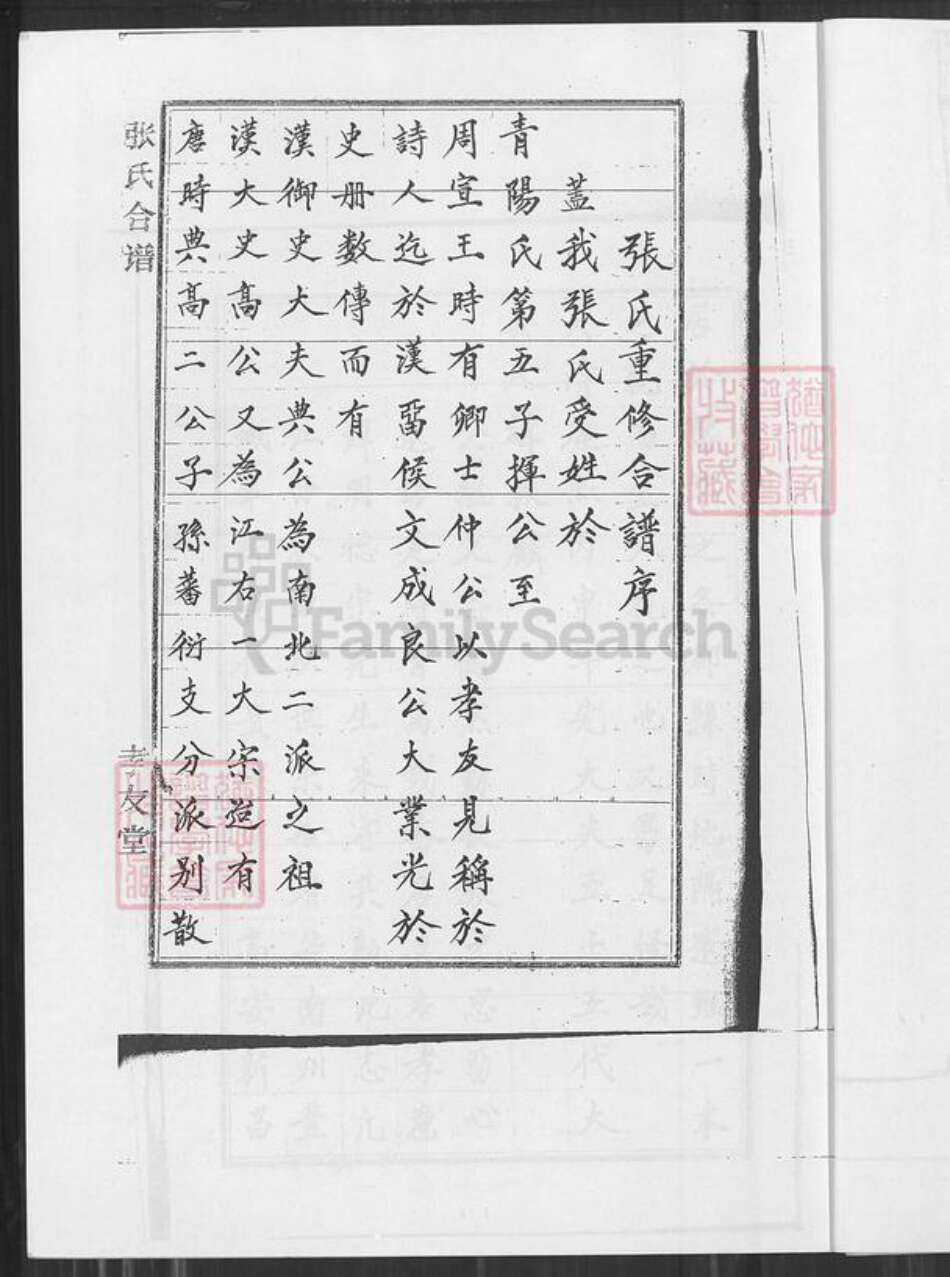 張氏重修合譜序
蓋我張氏受姓於
青陽氏第五子揮公至
周宣王時有卿士仲公以孝友見稱於
詩人迄於漢畱侯文成良公大業光於
史册數傳而有
漢御史大夫典公為南北二派之祖
漢大史髙公又為江右一大宗迨有
唐時典髙二公子孫蕃衍支分派别散
张氏合谱
孝友堂
FamilySearch